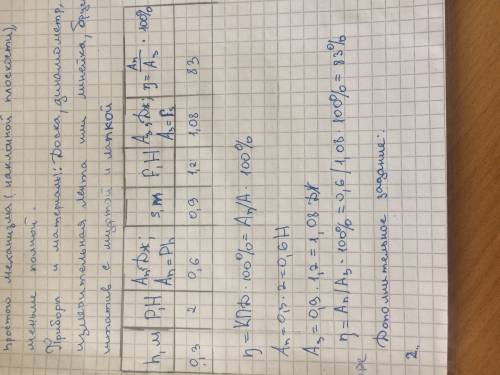 простого механизма (наклонной плоскости),
меньше полной.
Приборы и материалы: Доска, динамометр,
измерительная лента или линейка,
штатив с муфтой и лапкой
h, м P, H Aп, Дж; Aп=Ph s, м F, H Aз, Дж; Aз=Fs η= Aп/Aз · 100%
0,3 2 0,6 0,9 1,2 1,08 83
η = КПД · 100% = Aп/A · 100%
Aп = 0,3 · 2 = 0,6 H
Aз = 0,9 · 1,2 = 1,08 Дж
η = Aп/Aз · 100% = 0,6 / 1,08 100% = 83%
Дополнительное задание:
2.